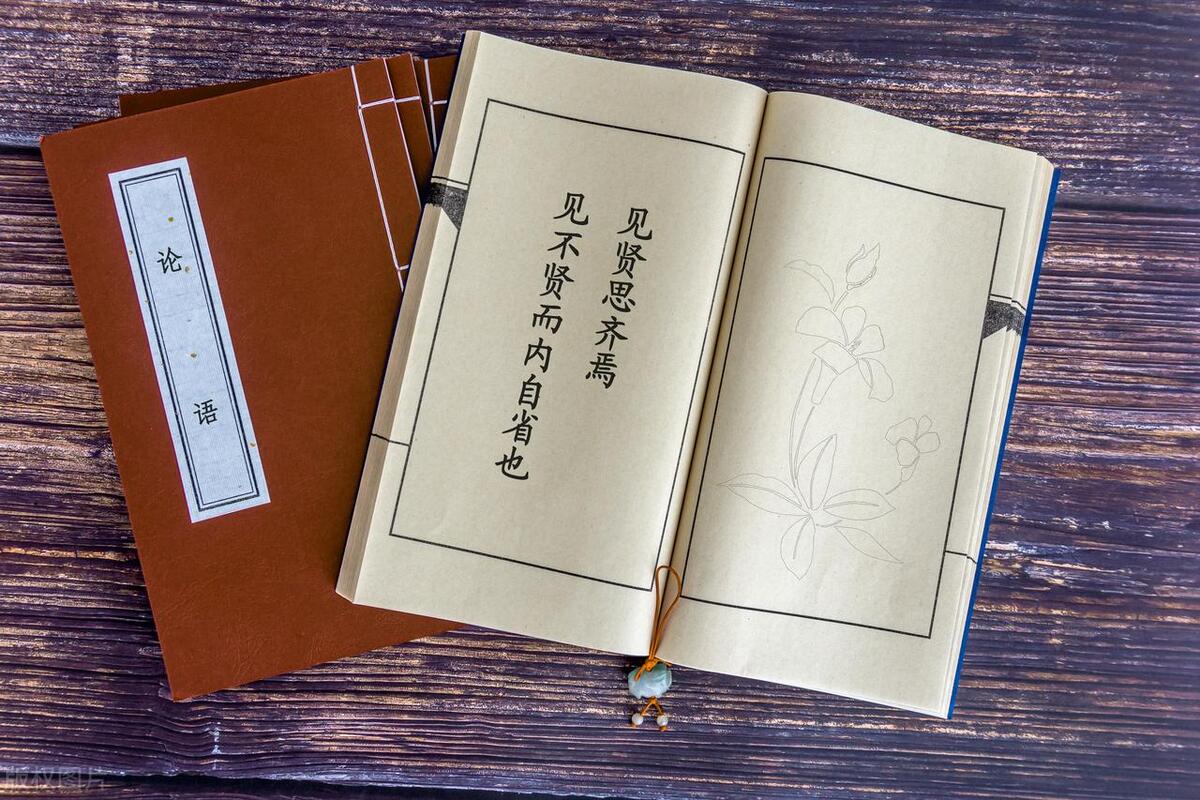 论语
见贤思齐焉
见不贤而内自省也
版权图片